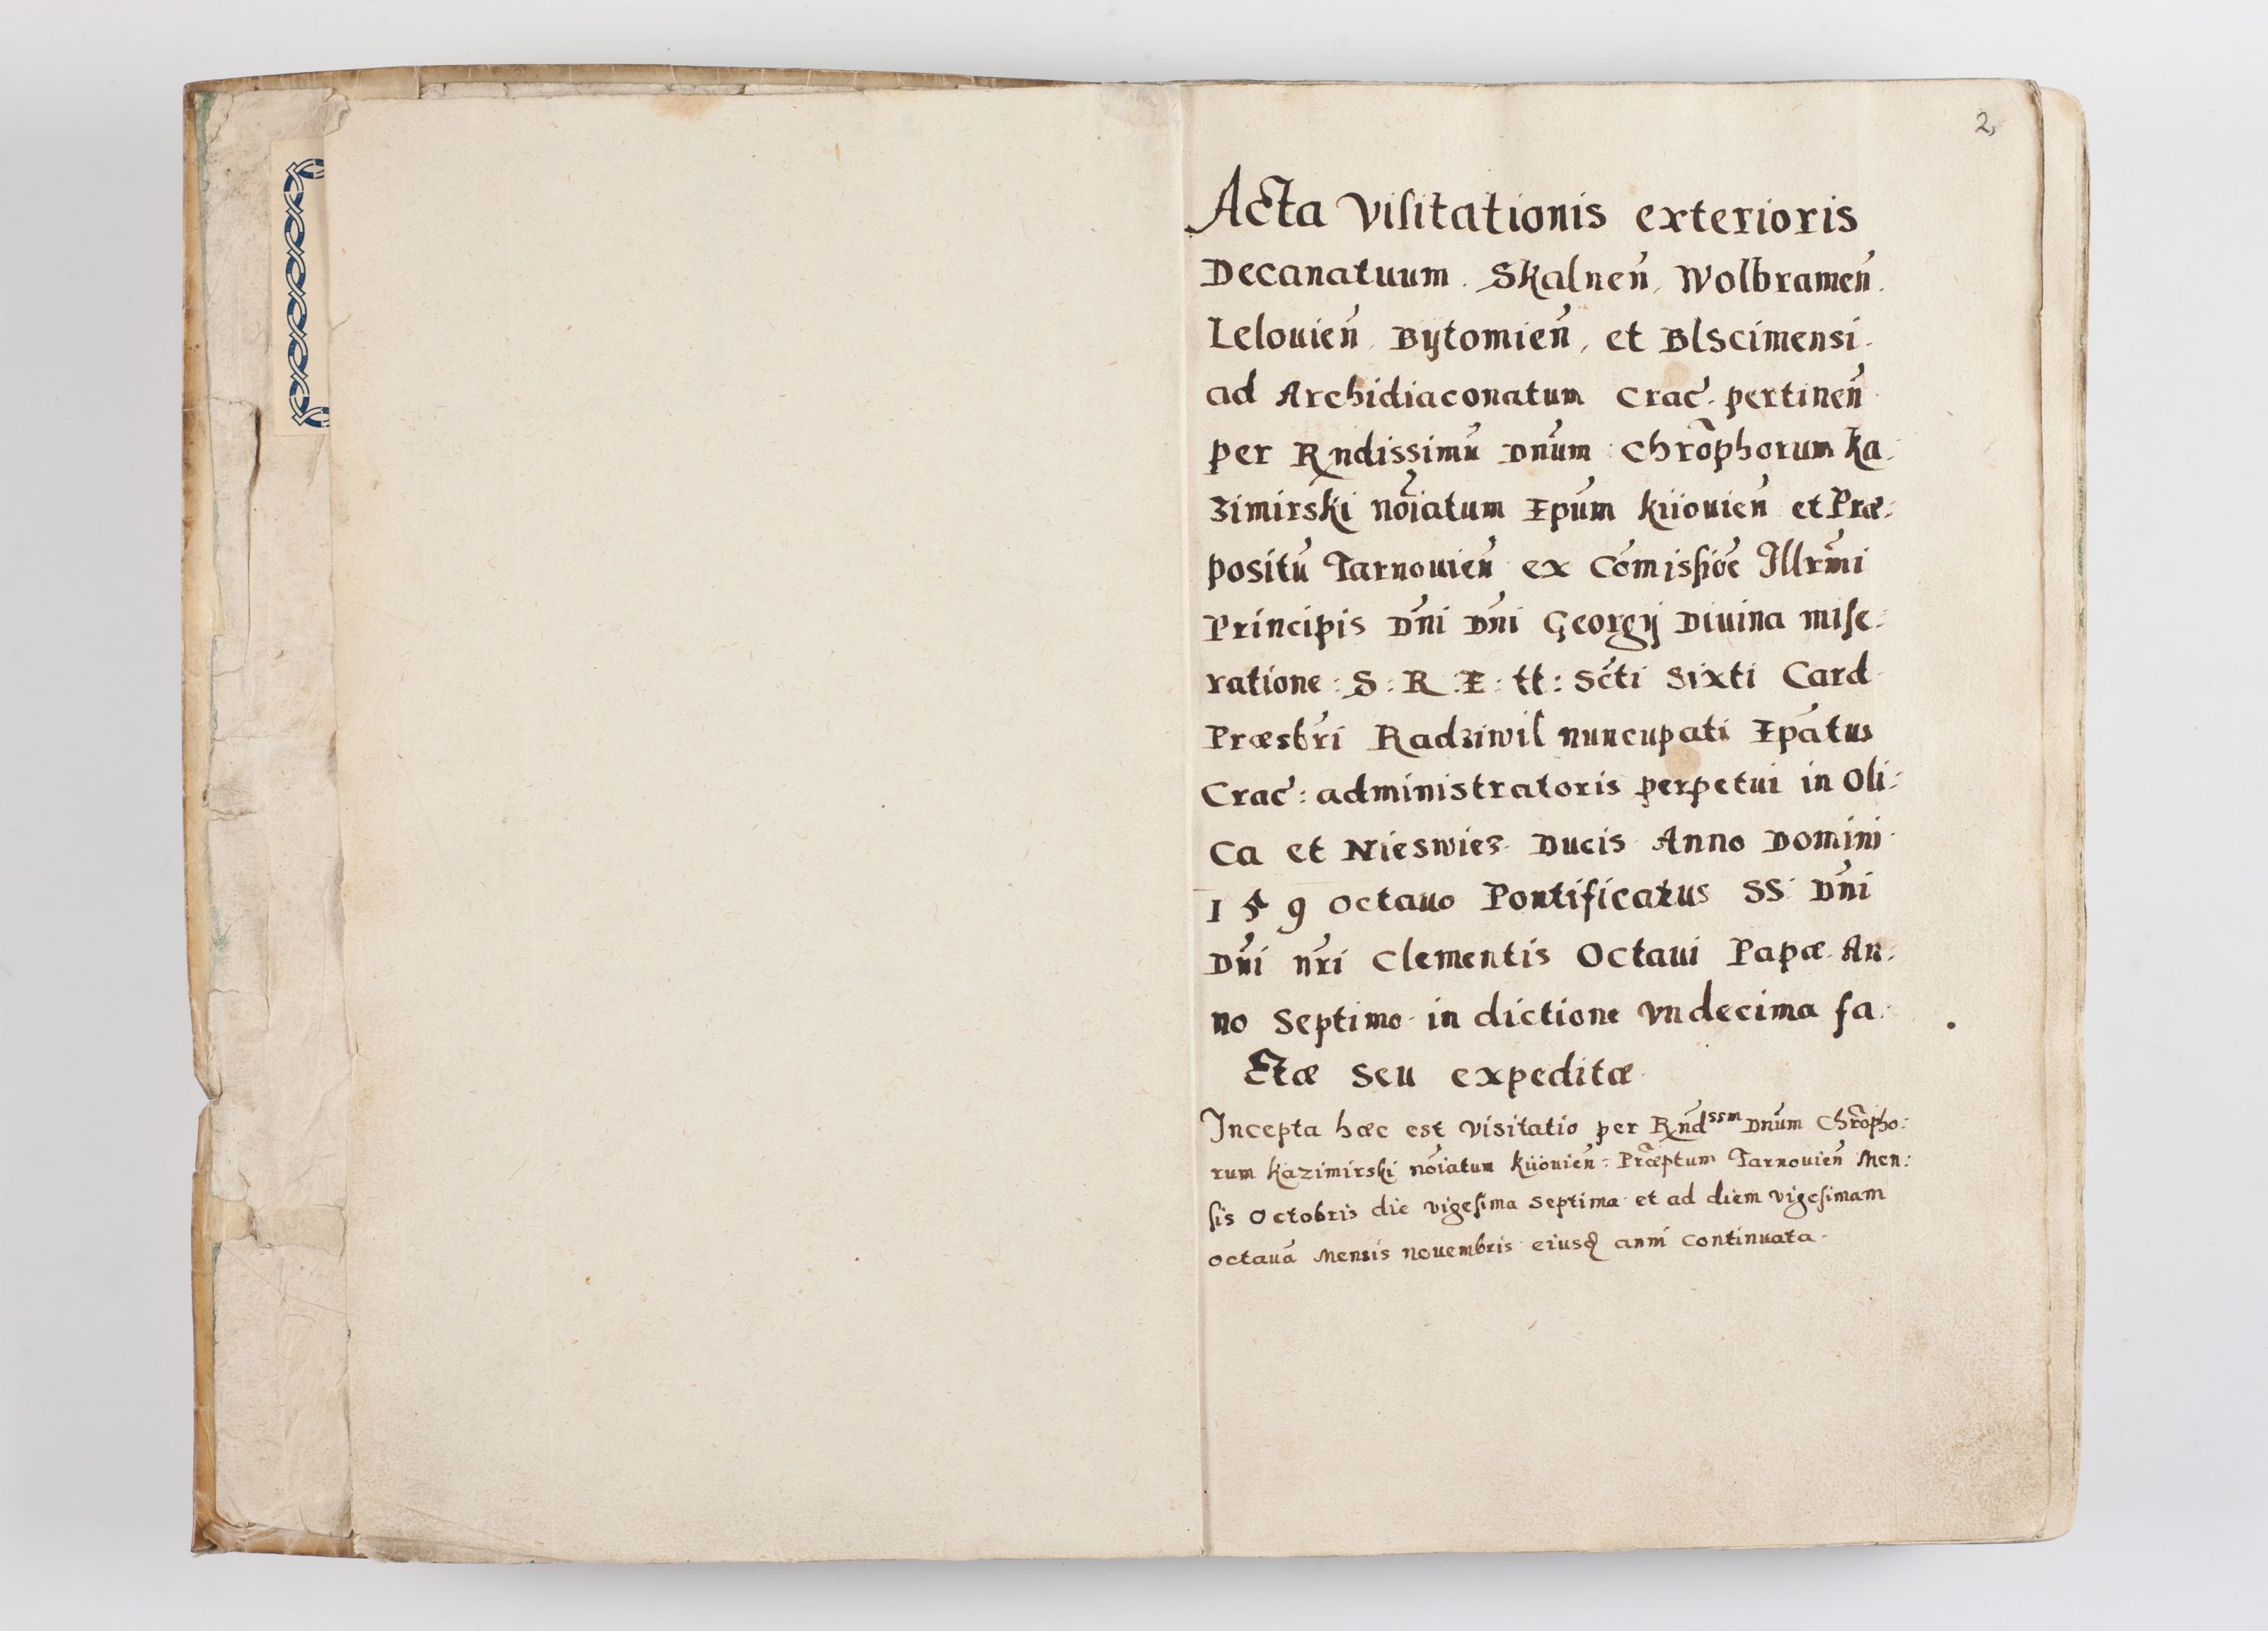 2,
Acta Visitationis exterioris
Decanatuum. Skalneñ, Wolbrameñ.
Lelouieñ, Bÿtomieñ, et Blscimensi.
ad Archidiaconatum Crac̃. pertineñ
per Rndissimũ Dnũm Chrõphorum Ka:
zimirski nõiatum Epũm Kiiouieñ et Præ:
positũ Tarnouieñ ex Cõmissiõe Illrm̃i
Principis Dñi Dñi Georgij Diuina mise:
ratione: S: R: E: tt: Sc̃ti Sixti Card
Præsbr̃i Radziwil nuncupati Epãtus
Crac̃: administratoris perpetui in Oli:
Ca et Nieswiez Ducis Anno Domini
1 5 9 octauo Pontificatus SS Dñi
Dñi nr̃i Clementis Octaui Papæ An:
no Septimo in dictione vndecima fa:
ctæ seu expeditæ
Incepta hæc est visitatio per Rñdssm Dnũm Chrõpho:
rum Kazimirski nõiatum Kiiouieñ: Præ̃ptum Tarnouieñ Men:
sis Octobris die vigesima septima et ad diem vigesimam
octauã Mensis nouembris eiusq̃ anni continuata